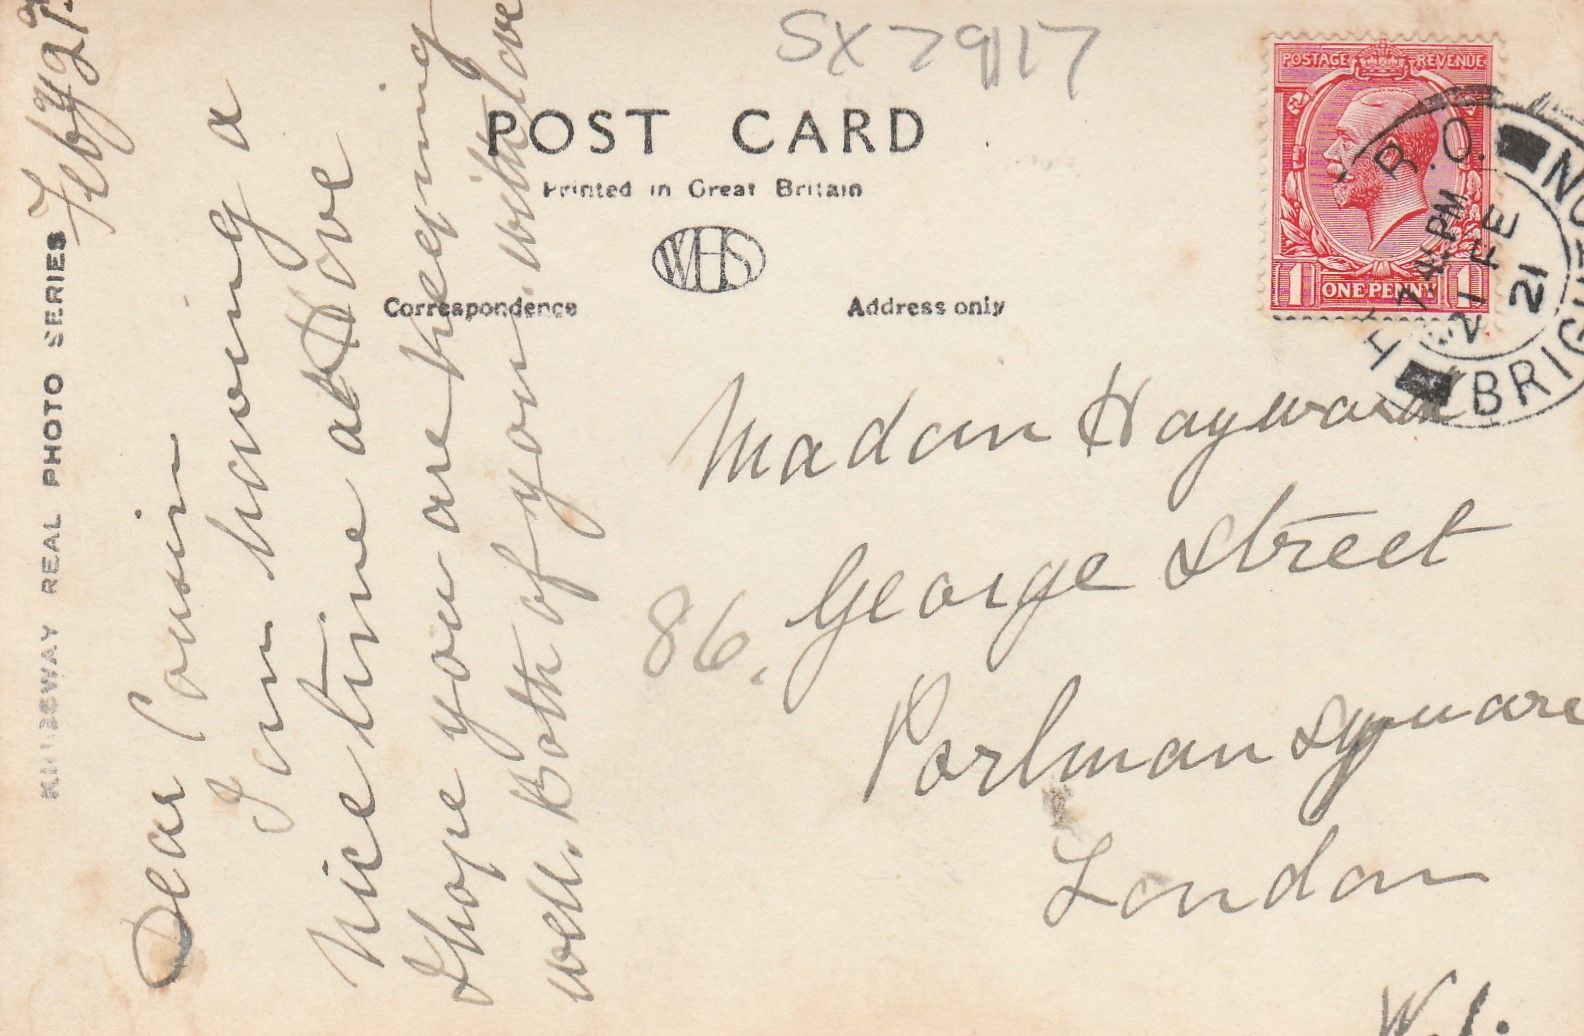 SX 7917
POST CARD
Printed in Great Britain
WHS
Correspondence
Address only
KINGSWAY REAL PHOTO SERIES
Feby 21
Dear Cousin
I am having a
nice time at Hove
I hope you are keeping
well. Both of you. with love
Madam Hayward
86, George Street
Portman Square
London
W.1.
POSTAGE REVENUE
1 ONE PENNY 1
B.O.
7.45 PM
21 FE
21
BRIGHTON